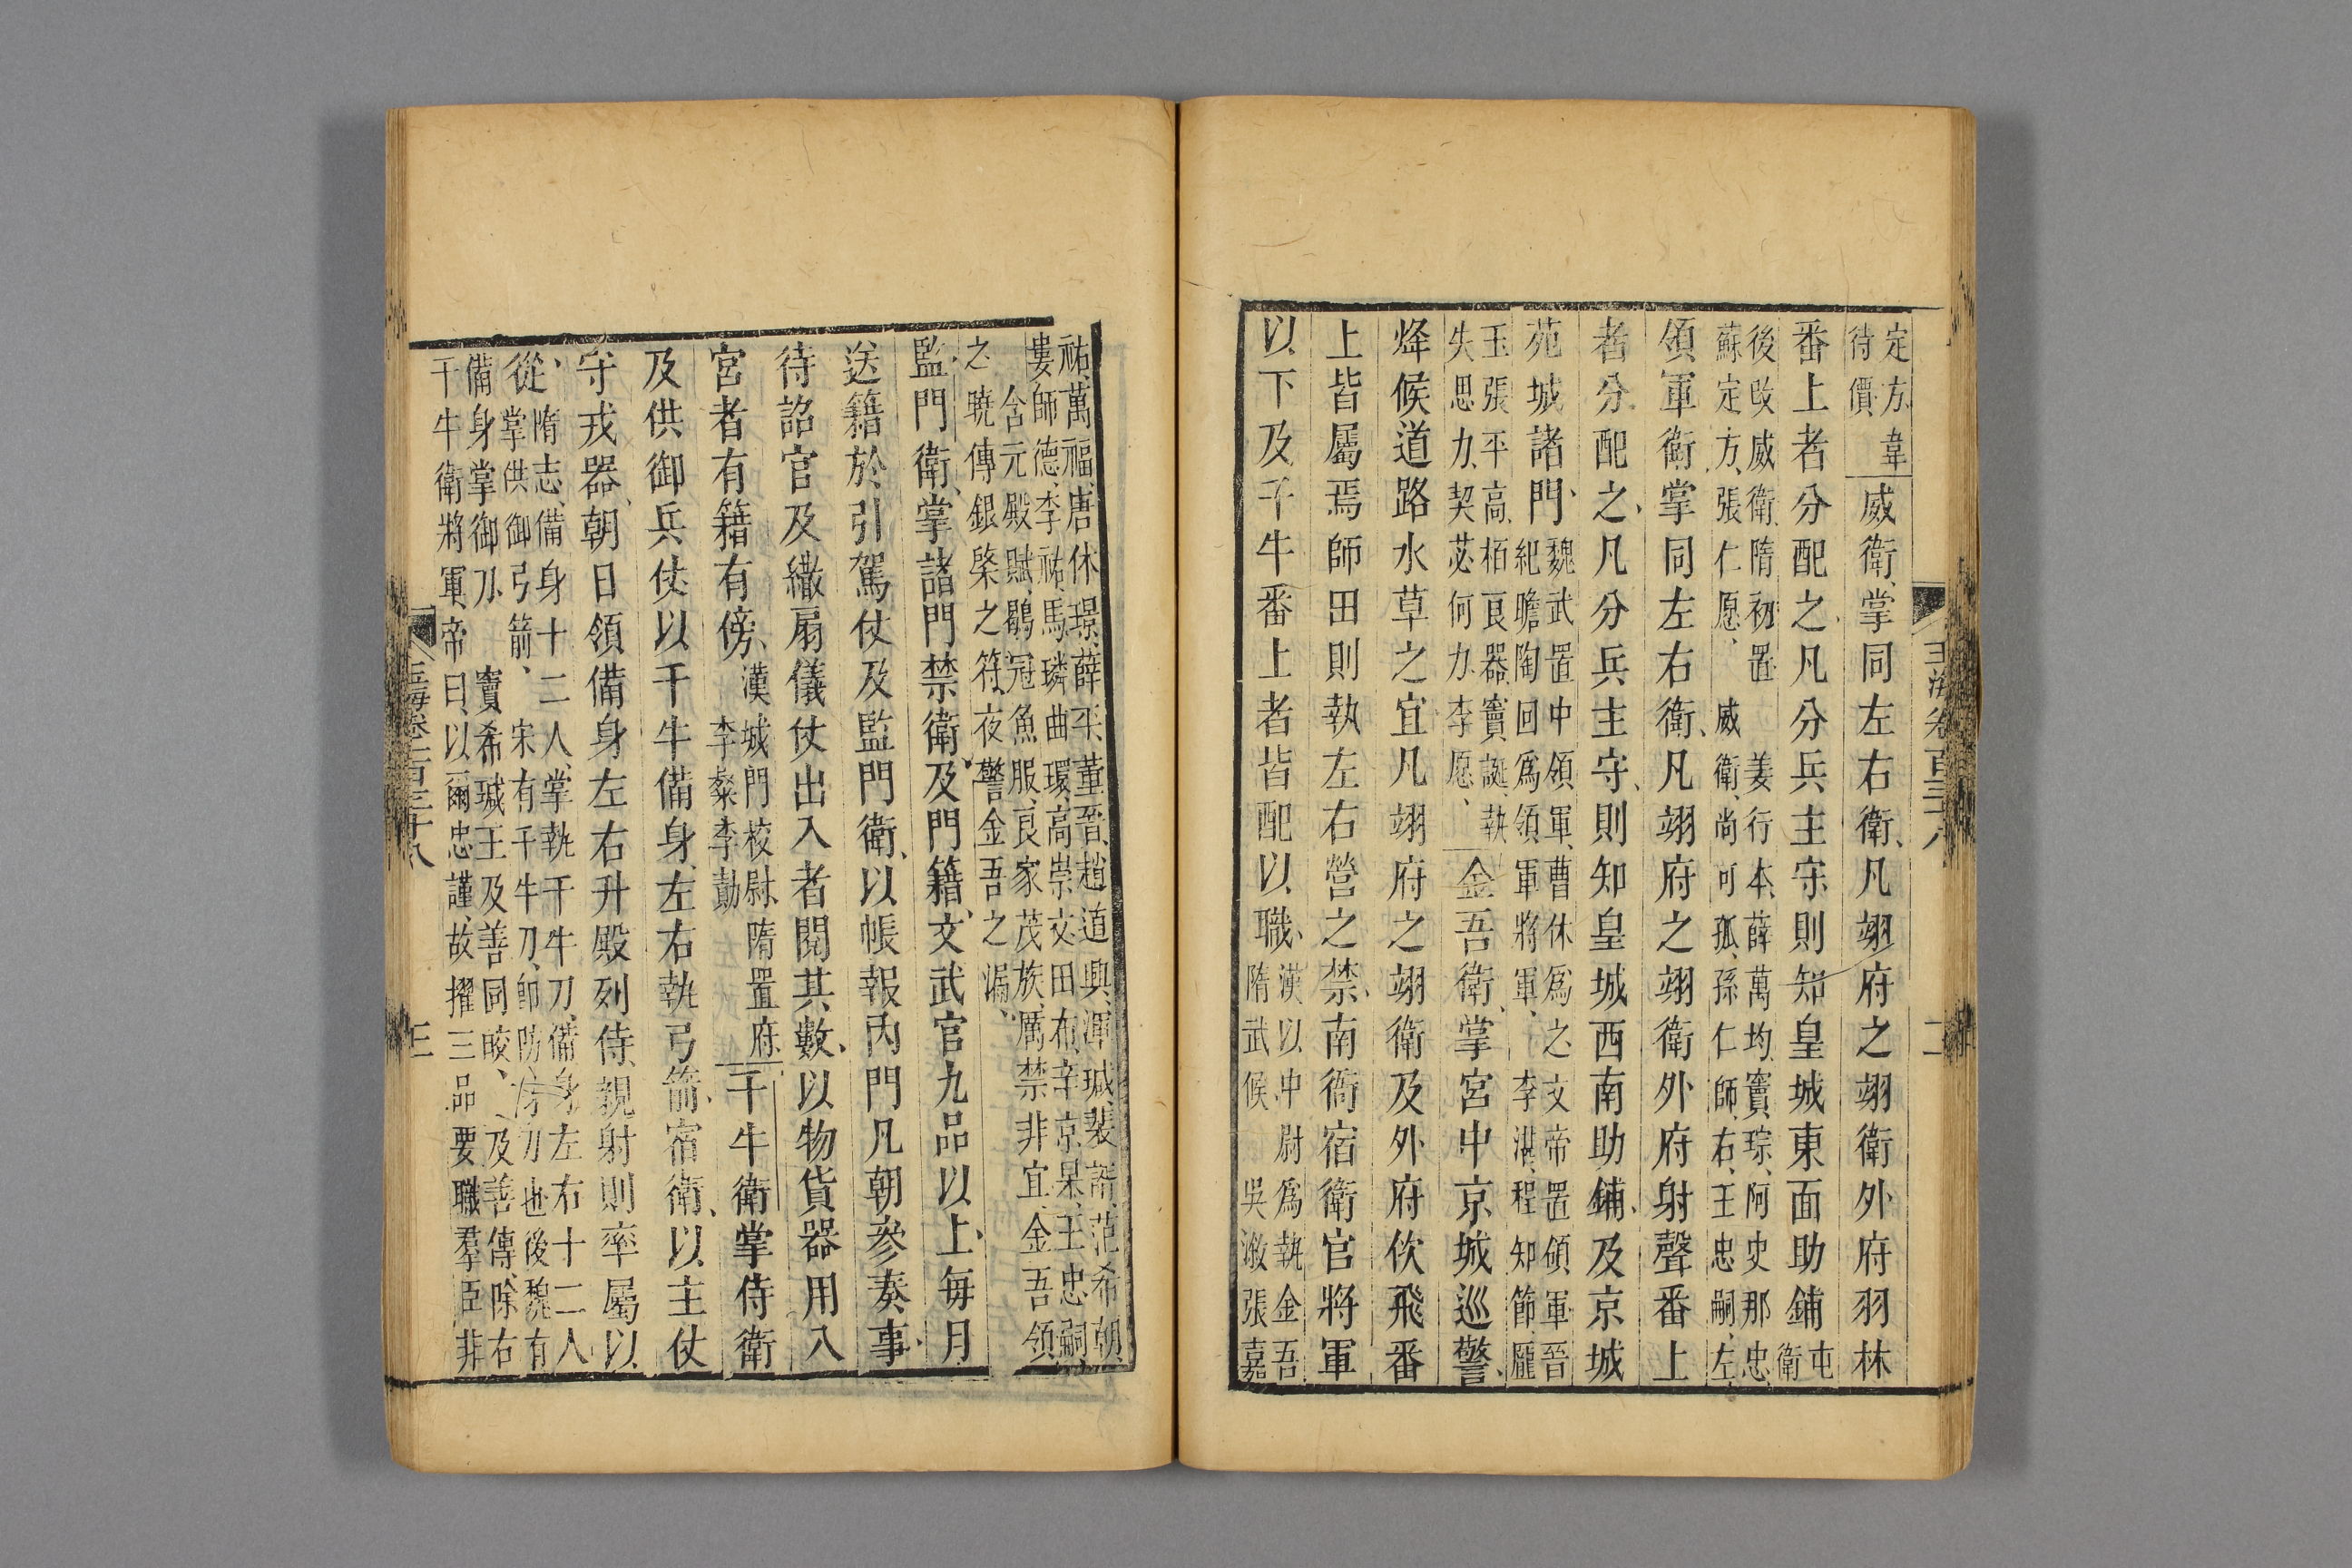 定方韋
待價
威衛掌同左右衛凡翊府之翊衛外府羽林
番上者分配之凡分兵主守則知皇城東面助鋪
屯
衛
後改威衛隋初置 姜行本薛萬均竇琮阿史那忠
蘇定方張仁愿 威衛尚可孤孫仁師右王忠嗣左
領軍衛掌同左右衛凡翊府之翊衛外府射聲番上
者分配之凡分兵主守則知皇城西南助鋪及京城
苑城諸門
魏武置中領軍曹休爲之文帝置領軍晉
紀瞻陶回爲領軍將軍 李湛程知節龐
玉張平高栢良器竇誕執
失思力契苾何力李愿
金吾衛掌宮中京城巡警
烽候道路水草之宜凡翊府之翊衛及外府佽飛番
上皆屬焉師田則執左右營之禁南衙宿衛官將軍
以下及千牛番上者皆配以職
漢以中尉爲執金吾
隋武候 吳漵張嘉
玉海卷百三十八 二
祐萬福唐休璟薛平董晉趙道興渾瑊裴諝范希朝
婁師德李祐馬璘曲環高崇文田布辛京杲王忠嗣
含元殿賦鶡冠魚服良家茂族厲禁非宜金吾領
之曉傳銀棨之符夜警金吾之漏
監門衛掌諸門禁衛及門籍文武官九品以上每月
送籍於引駕仗及監門衛以帳報內門凡朝參奏事
待詔官及繖扇儀仗出入者閱其數以物貨器用入
宮者有籍有傍
漢城門校尉隋置府
李粲李勣
千牛衛掌侍衛
及供御兵仗以千牛備身左右執弓箭宿衛以主仗
守戎器朝日領備身左右升殿列侍親射則率屬以
從
隋志備身十二人掌執千牛刀備身左右十二人
掌供御弓箭 宋有千牛刀卽防身刀也後魏有
備身掌御刀 竇希瑊王及善同皎 及善傳除右
千牛衛將軍帝曰以爾忠謹故擢三品要職羣臣非
玉海卷一百三十八 三